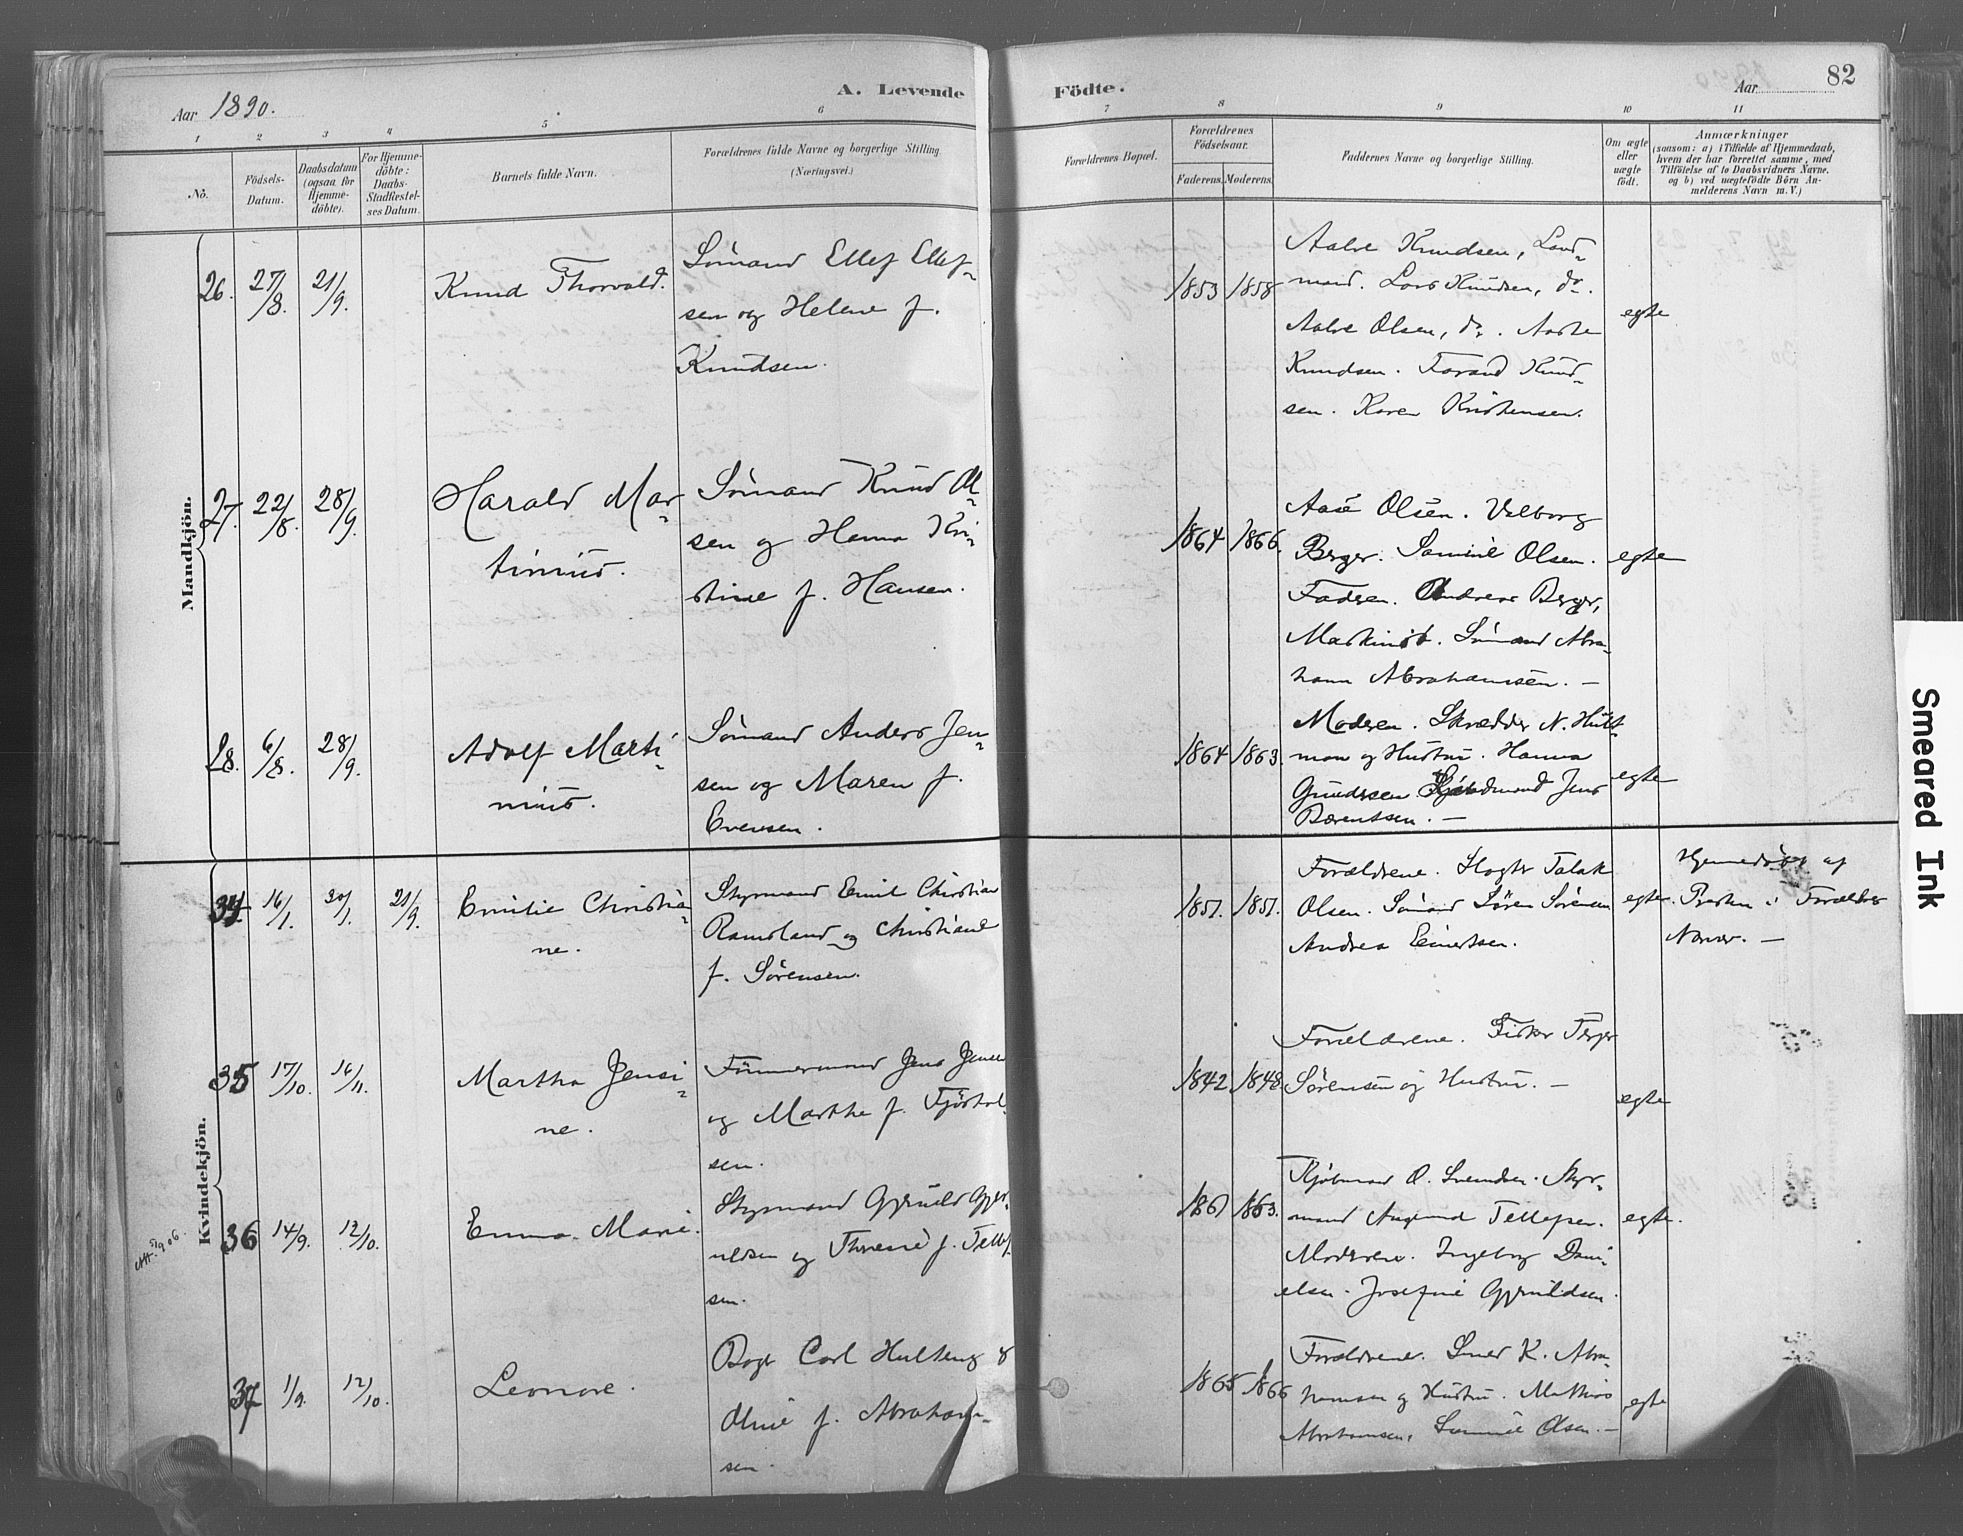 Aar 1890.
A. Levende Födte.
Aar 82
1 2 3 4 5 6 7 8 9 10 11
No.
Födsels-Datum.
Daabsdatum (ogsaa for Hjemme-döbte).
For Hjemme-döbte: Daabs-Stadfæstel-ses Datum.
Barnets fulde Navn.
Forældrenes fulde Navne og borgerlige Stilling
(Næringsvei.)
Forældrenes Bopæl.
Forældrenes Födselsaar.
Faderens. Moderens.
Faddernes Navne og borgerlige Stilling.
Om ægte eller uægte födt.
Anmærkninger
(saasom: a) i Tilfælde af Hjemmedaab,
hvem der har forrettet samme, med
Tilföielse af to Daabsvidners Navne,
og b) ved uægtefödte Börn An-
melderens Navn m. V.)
Mandkjön.
26. 27/8. 21/9. Knud Thorvald.
Sømand Ellef Ellef-
sen og Helene f.
Knudsen.
1853 1858
Knudsen, Land-
mand. Lars Knudsen, do.
Olsen, do.
Knudsen. Knud-
sen. Karen Kristensen.
egte
27. 22/8. 28/9. Harald Mar-
tinius.
Sømand Knud Ol-
sen og Hanna Kri-
stine f. Hansen.
1864 1866.
Olsen. Valborg
Berger. Samine Olsen.
Faderen. Andreas Berger,
Maskinist. Sømand Abra-
ham Abrahamsen. —
egte
28. 6/8. 28/9. Adolf Marti-
nius.
Sømand Anders Jen-
sen og Maren f.
Evensen.
1864 1863.
Moderen. Skrædder N. Hult-
man og Hustru. Hanna
Gundersen Jens
Berentsen. —
egte
Kvindekjön.
34 16/1. 30/1. 21/9. Emilie Christia-
ne.
Styrmand Emil Christian
Ramsland og Christiane
f. Sørensen.
1851. 1851.
Forældrene. Talak
Olsen. Sømand Søren Sørensen
Andrea Einertsen.
egte.
Hjemmedøbt af
Presten i Forældres
Nærvær. —
35 17/10. 16/11. Martha Jensi-
ne.
Tømmermand Jens Jensen
og Marthe f.
sen.
1842 1848.
Forældrene. Fisker Terjer
Sørensen og Hustru. —
egte
36 14/9. 12/10. Emma Marie.
Styrmand Gjeruld Gjer-
uldsen og Thrine f. Tellef-
sen.
1861 1863.
Kjøbmand O. Svendsen. Styr-
mand Tellefsen.
Moderen. Ingeborg Dani-
elsen. Josefine Gjeruldsen.
egte.
37 1/9. 12/10. Leonore.
Carl Hulteng &
Oline f. Abraham-
sen.
1865 1866
Forældrene. Smed K. Abra-
hamsen og Hustru. Mathias
Abrahamsen, Samine Olsen. —
egte
Smeared Ink